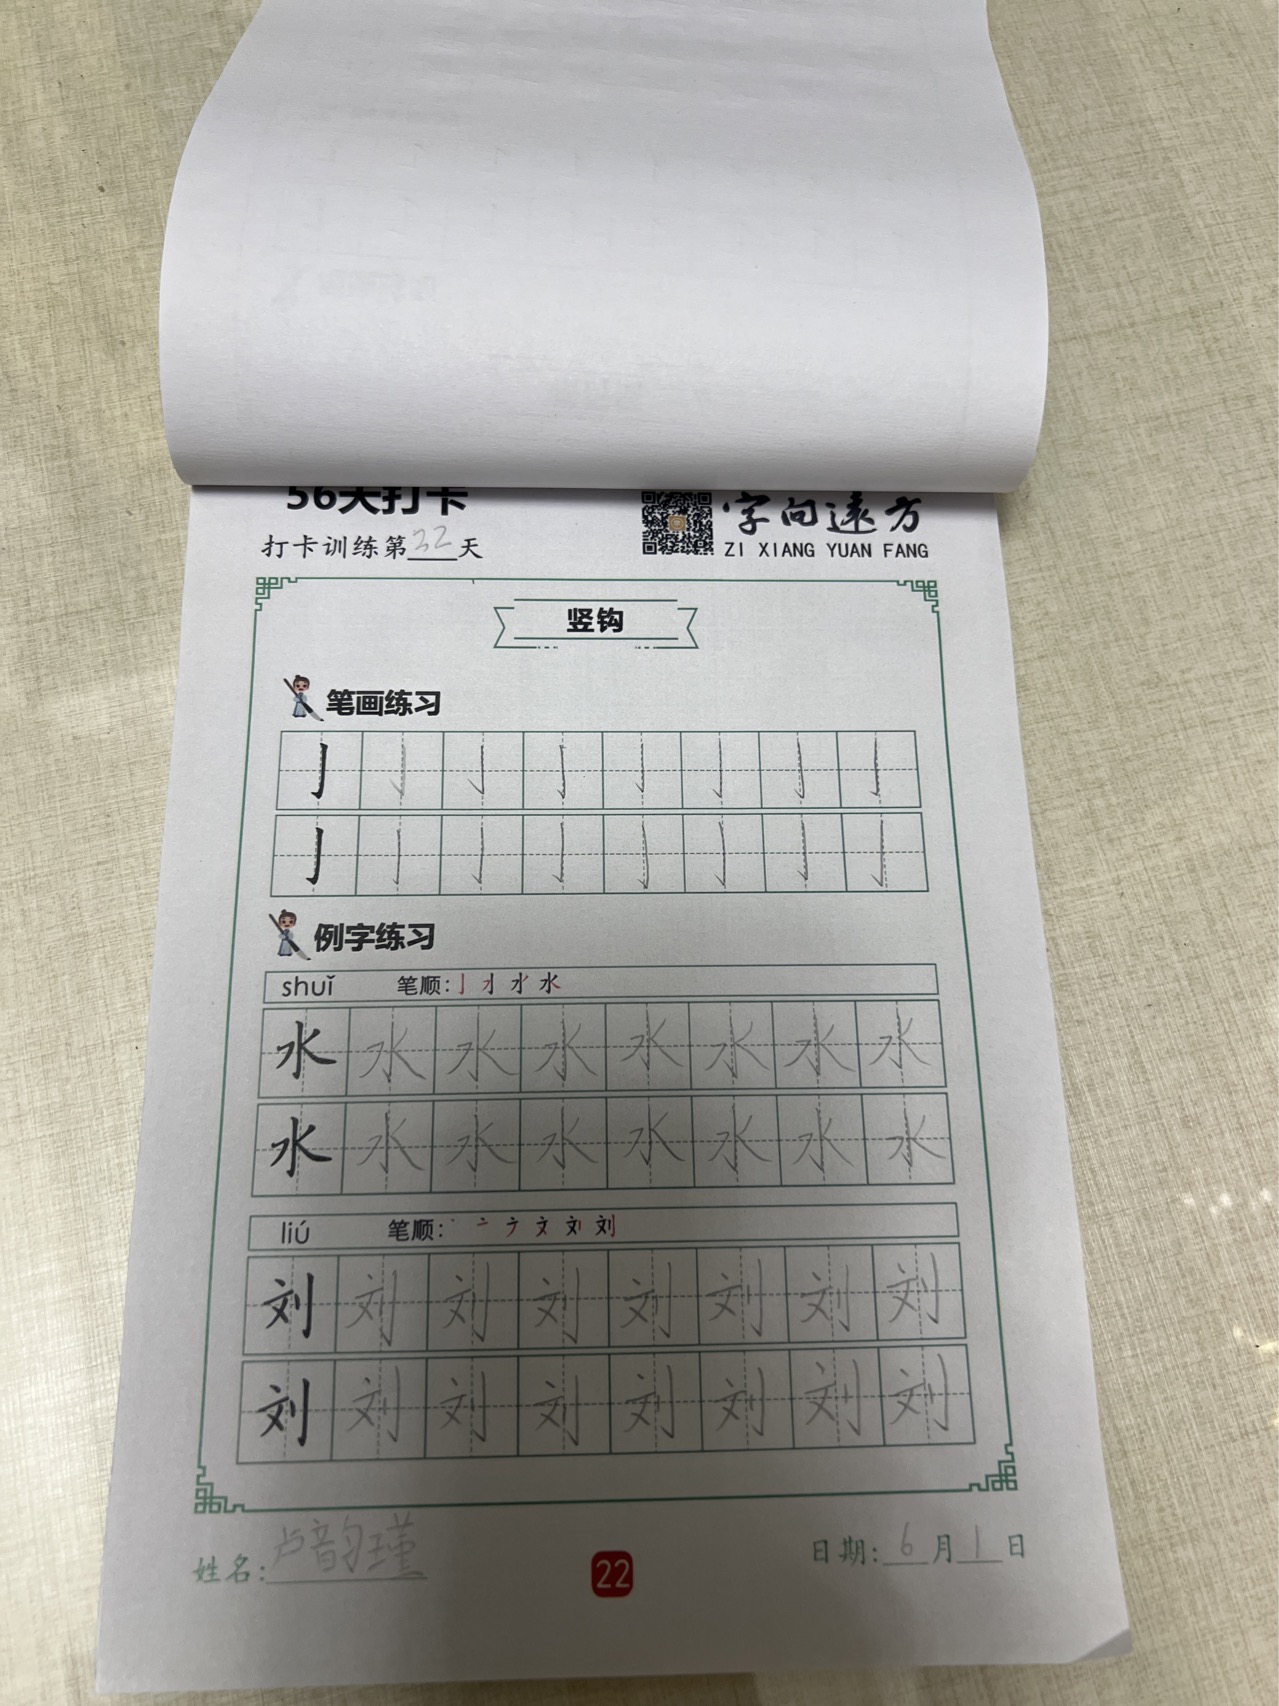 56天打卡
打卡训练第32天
字向遠方
ZI XIANG YUAN FANG
竖钩
笔画练习
亅 亅 亅 亅 亅 亅 亅 亅
亅 亅 亅 亅 亅 亅 亅 亅
例字练习
shuǐ 笔顺:
水 水 水 水 水 水 水 水
水 水 水 水 水 水 水 水
liú 笔顺:
刘 刘 刘 刘 刘 刘 刘 刘
刘 刘 刘 刘 刘 刘 刘 刘
姓名:卢韵瑾
22
日期:6月1日